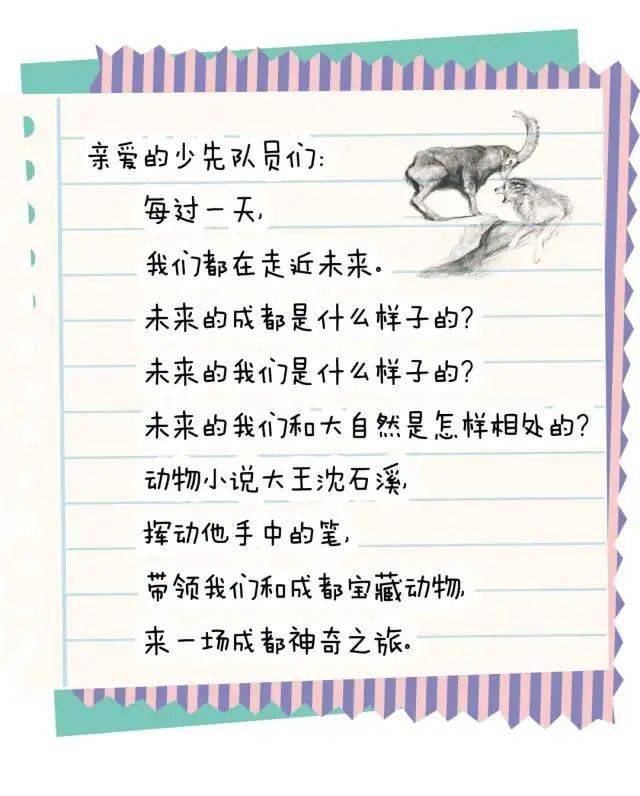 亲爱的少先队员们:
每过一天,
我们都在走近未来。
未来的成都是什么样子的?
未来的我们是什么样子的?
未来的我们和大自然是怎样相处的?
动物小说大王沈石溪,
挥动他手中的笔,
带领我们和成都宝藏动物,
来一场成都神奇之旅。